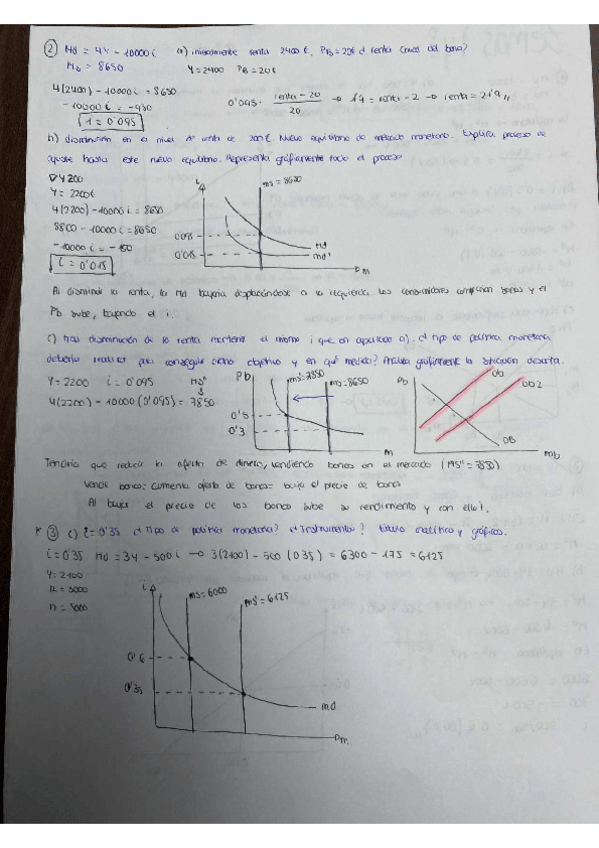 ② Md = 4Y - 10000i a) inicialmente renta 2400€, PB = 20€ ¿renta (cupón) del bono?
Mo = 8650 Y = 2400 PB = 20€
4(2400) - 10000i = 8650
-10000i = -950 0'095 = renta - 20 / 20 → 1'9 = renta - 2 → renta = 21'9
i = 0'095
b) disminución en el nivel de renta de 200€. Nuevo equilibrio de mercado monetario. Explica proceso de
ajuste hasta este nuevo equilibrio. Represéntalo gráficamente todo el proceso
∇Y 200
Y = 2200€
4(2200) - 10000i = 8650
8800 - 10000i = 8650
-10000i = -150
i = 0'015
i
ms = 8650
0'095
0'015
Md
Md'
m
Al disminuir la renta, la Md bajaría desplazándose a la izquierda. Los consumidores comprarían bonos y el
Pb sube, bajando el i.
c) tras disminución de la renta mantener el mismo i que en apartado a). ¿tipo de política monetaria
debería realizar para conseguir dicho objetivo y en qué medida? Analiza gráficamente la situación descrita.
Y = 2200 i = 0'095 Mo''
4(2200) - 10000(0'095) = 7850
Pb
ms' = 7850
mo = 8650
0'5
0'3
m
Pb
Ob
Ob2
DB
mb
Tendría que reducir la oferta de dinero, vendiendo bonos en el mercado (MS'' = 7850)
Vende bonos = aumenta oferta de bonos = baja el precio de bonos
Al bajar el precio de los bonos sube su rendimiento y con ello i.
* ③ c) i = 0'35 ¿Tipo de política monetaria? ¿Instrumentos? Cálculo analítico y gráficos.
i = 0'35 Md = 3Y - 500i → 3(2100) - 500(0'35) = 6300 - 175 = 6125
Y = 2100
i
ms = 6000
ms' = 6125
0'6
0'35
md
m